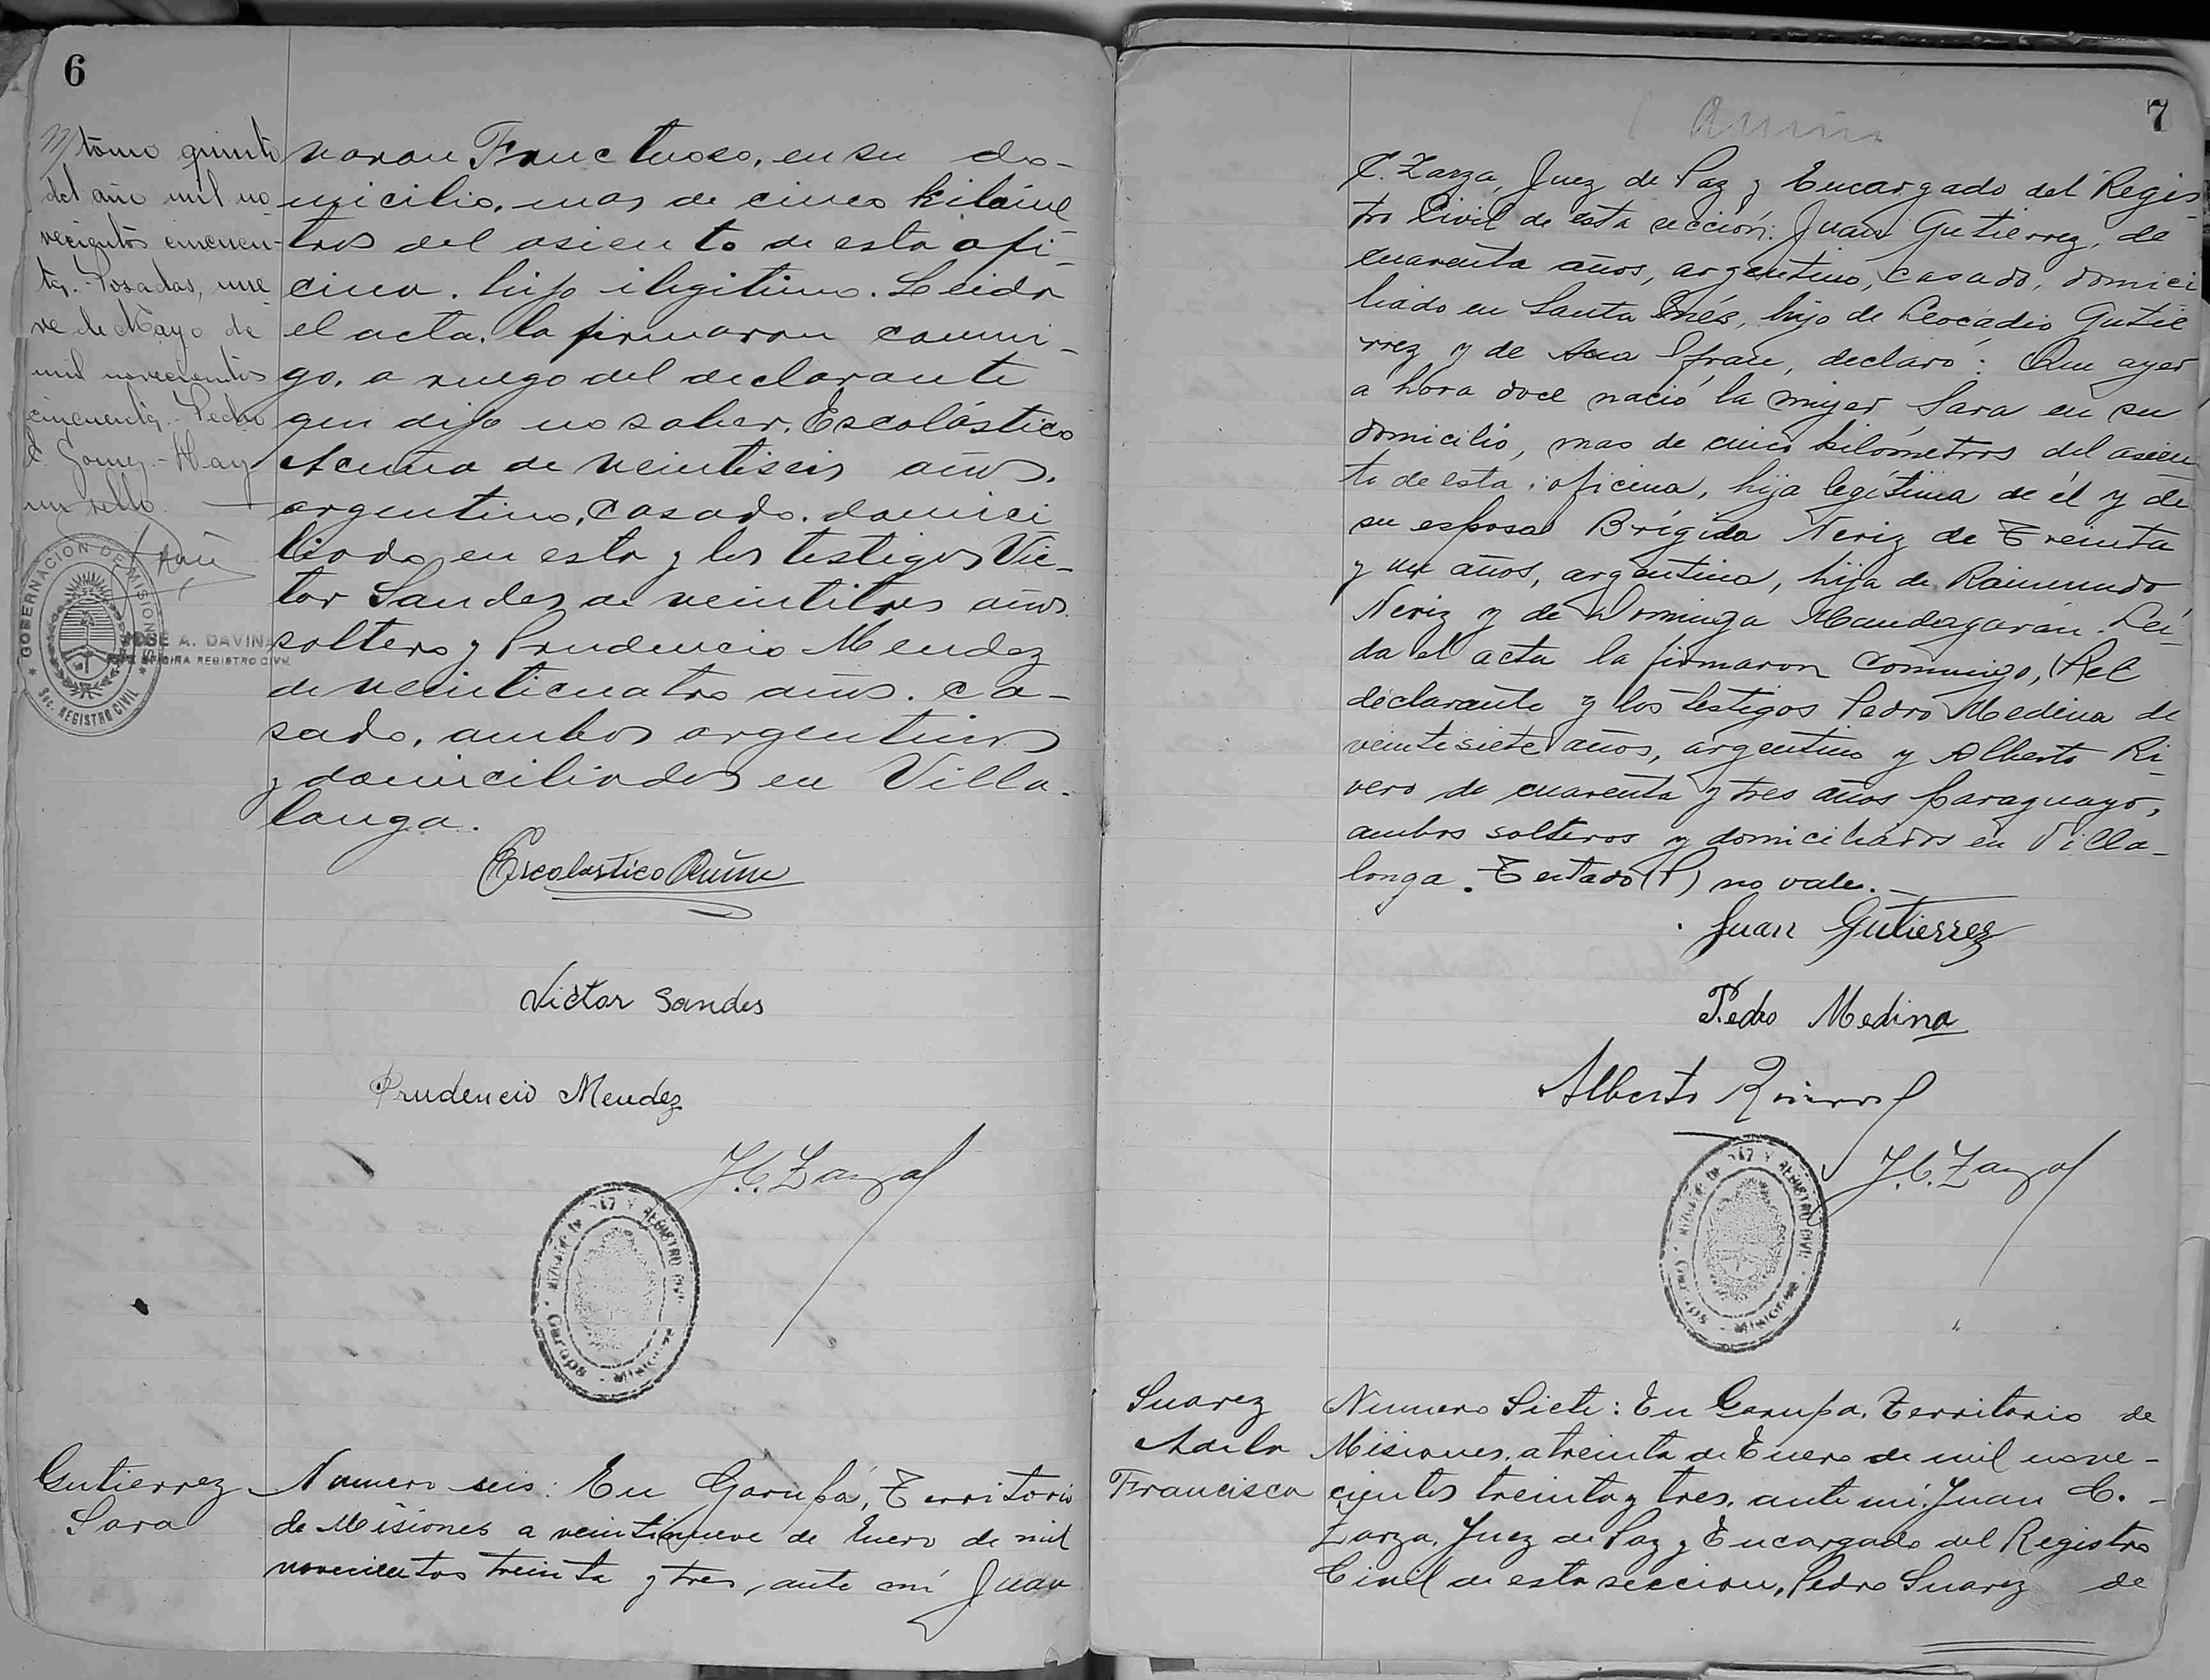 6
tomo quinto
del año mil no
vecientos cincuen-
ta.- Posadas, nue
ve de Mayo de
mil novecientos
cincuenta.- Pedro
Gomez.- Hay
un sello.
GOBERNACION DE MISIONES
SEC. REGISTRO CIVIL
JOSE A. DAVIÑA
OFICINA REGISTRO CIVIL
naron Fructuoso, en su do-
micilio, mas de cinco kilóme
tros del asiento de esta ofi-
cina. hijo ilegitimo. Leida
el acta, la firmaron conmi-
go, a ruego del declarante
que dijo no saber, Escolástico
Acuña de veintiseis años,
argentino, casado, domici
liado en esta y los testigos Vic-
tor Sandes de veintitres años
soltero y Prudencio Mendez
de veinticuatro años. ca-
sado, ambos argentinos
y domiciliados en Villa-
longa.
Escolastico Acuña
Victor Sandes
Prudencio Mendez
J.C. Zarza
JUZGADO DE PAZ Y REGISTRO CIVIL
Garupá - Misiones
Gutierrez
Sara
Numero seis: En Garupá, Territorio
de Misiones a veintinueve de Enero de mil
novecientos treinta y tres, ante mí Juan
7
C. Zarza, Juez de Paz y Encargado del Regis
tro Civil de esta sección: Juan Gutierrez, de
cuarenta años, argentino, casado, domici
liado en Santa Inés, hijo de Leocadio Gutié
rrez y de Ana Ifran, declaró: Que ayer
a hora doce nació la mujer Sara en su
domicilio, mas de cinco kilómetros del asien
to de esta oficina, hija legítima de él y de
su esposa Brígida Neriz de Treinta
y un años, argentina, hija de Raimundo
Neriz y de Dominga Mandagarán. Leí-
da el acta la firmaron conmigo, el
declarante y los testigos Pedro Medina de
veintisiete años, argentino y Alberto Ri-
vero de cuarenta y tres años paraguayo,
ambos solteros y domiciliados en Villa-
longa. Testado (P) no vale.-
Juan Gutierrez
Pedro Medina
Alberto Rivero
J.C. Zarza
JUZGADO DE PAZ Y REGISTRO CIVIL
Garupá - Misiones
Suarez
Adela
Francisca
Numero Siete: En Garupá, Territorio de
Misiones, a treinta de Enero de mil nove-
cientos treinta y tres, ante mí, Juan C. -
Zarza, Juez de Paz y Encargado del Registro
Civil de esta seccion, Pedro Suarez de